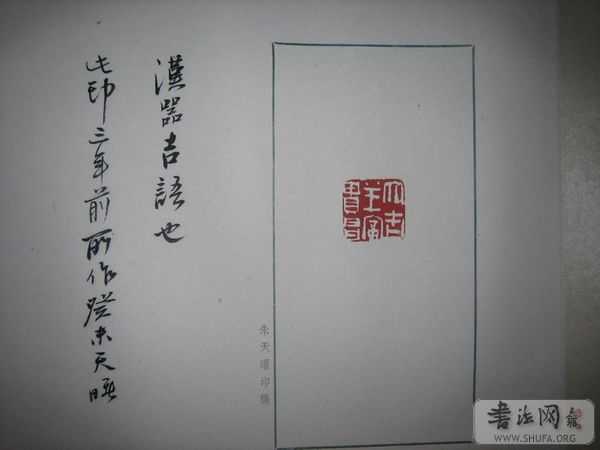 大吉
富
貴昌
朱天曙印稿
漢器吉語也
此印三年前所作癸未天曙
書法网
WWW.SHUFA.ORG